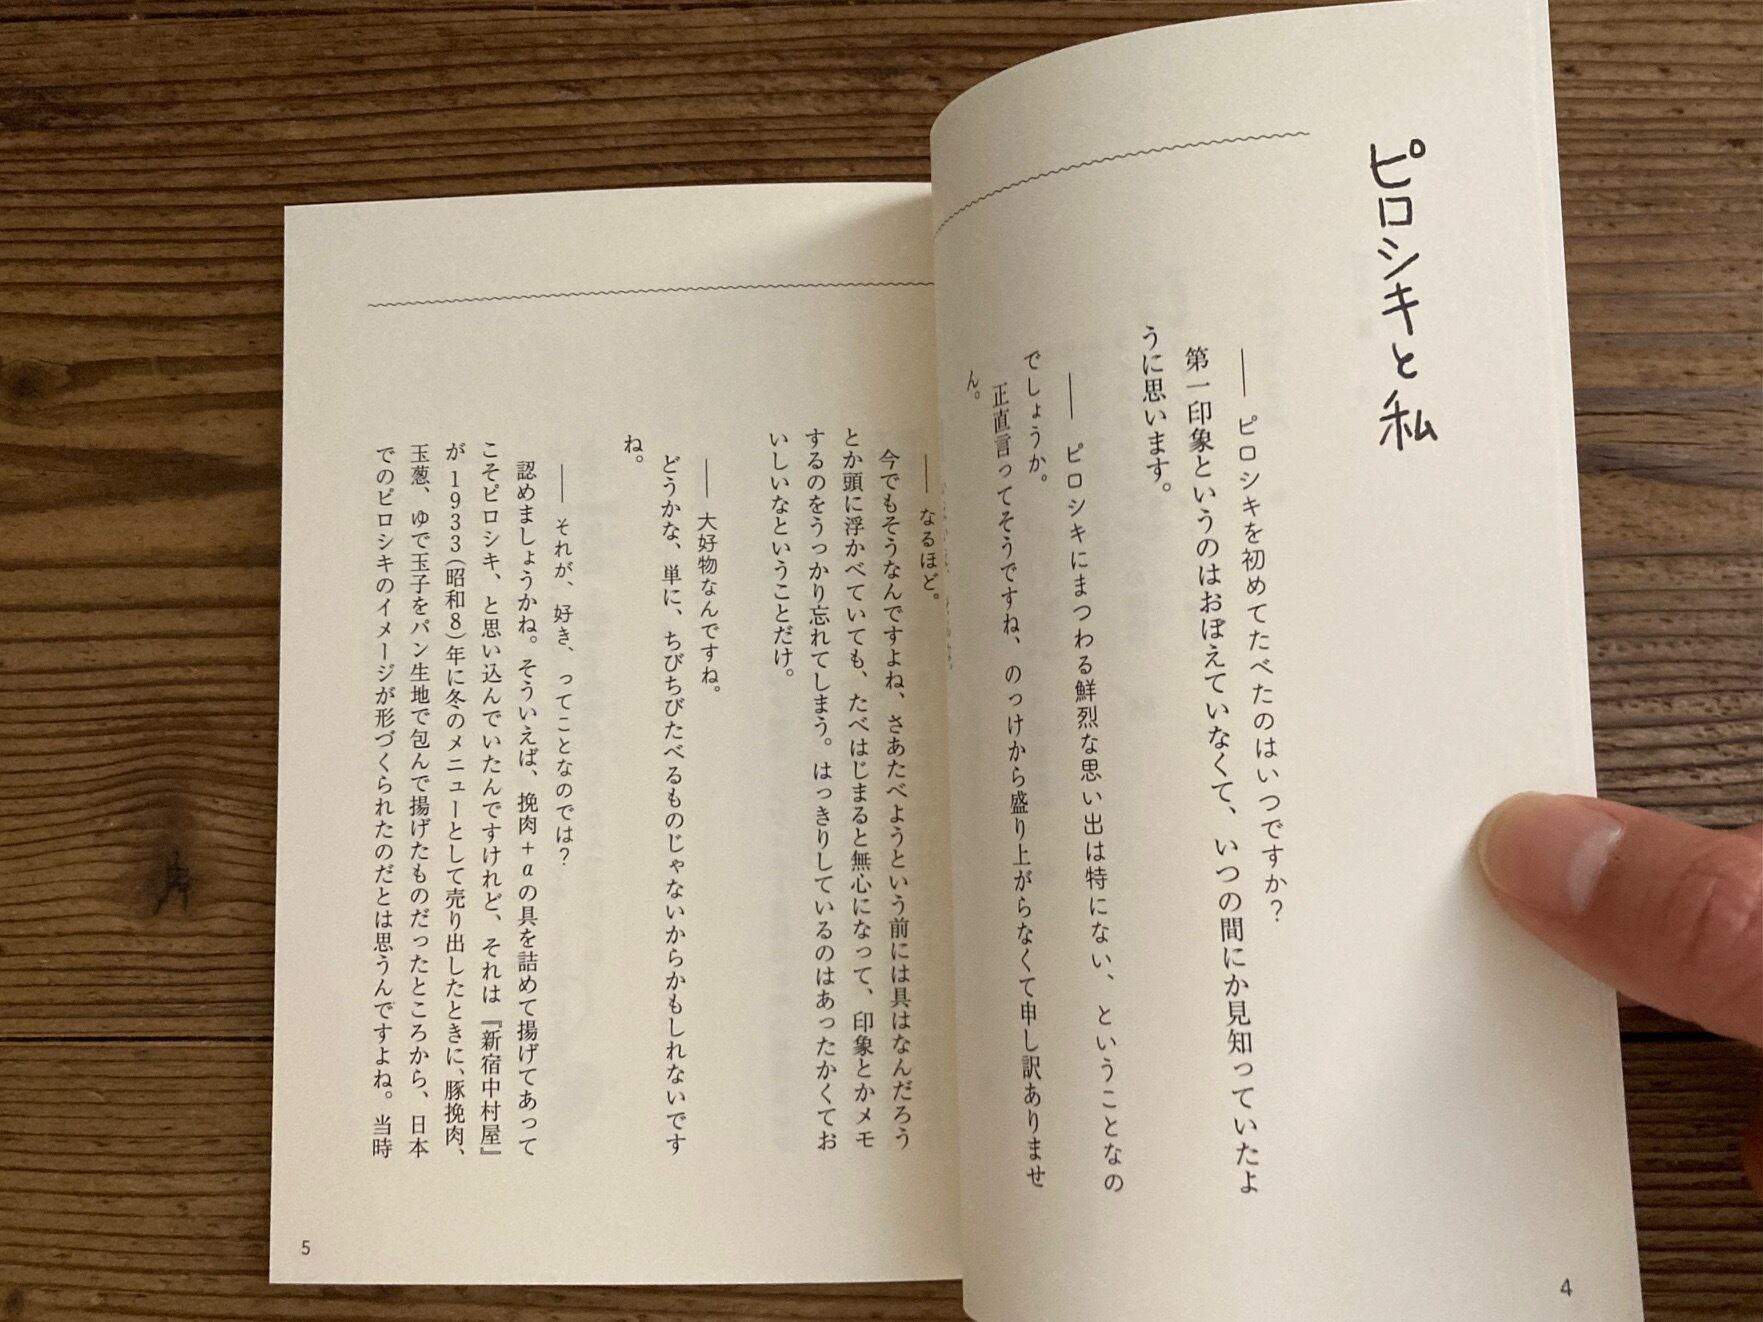 ピロシキと私
── ピロシキを初めてたべたのはいつですか？
第一印象というのはおぼえていなくて、いつの間にか見知っていたよ
うに思います。
── ピロシキにまつわる鮮烈な思い出は特にない、ということなの
でしょうか。
正直言ってそうですね、のっけから盛り上がらなくて申し訳ありませ
ん。
4
── なるほど。
今でもそうなんですよね、さあたべようという前には具はなんだろう
とか頭に浮かべていても、たべはじまると無心になって、印象とかメモ
するのをうっかり忘れてしまう。はっきりしているのはあったかくてお
いしいなということだけ。
── 大好物なんですね。
どうかな、単に、ちびちびたべるものじゃないからかもしれないです
ね。
── それが、好き、ってことなのでは？
認めましょうかね。そういえば、挽肉+αの具を詰めて揚げてあって
こそピロシキ、と思い込んでいたんですけれど、それは『新宿中村屋』
が1933（昭和8）年に冬のメニューとして売り出したときに、豚挽肉、
玉葱、ゆで玉子をパン生地で包んで揚げたものだったところから、日本
でのピロシキのイメージが形づくられたのだとは思うんですよね。当時
5